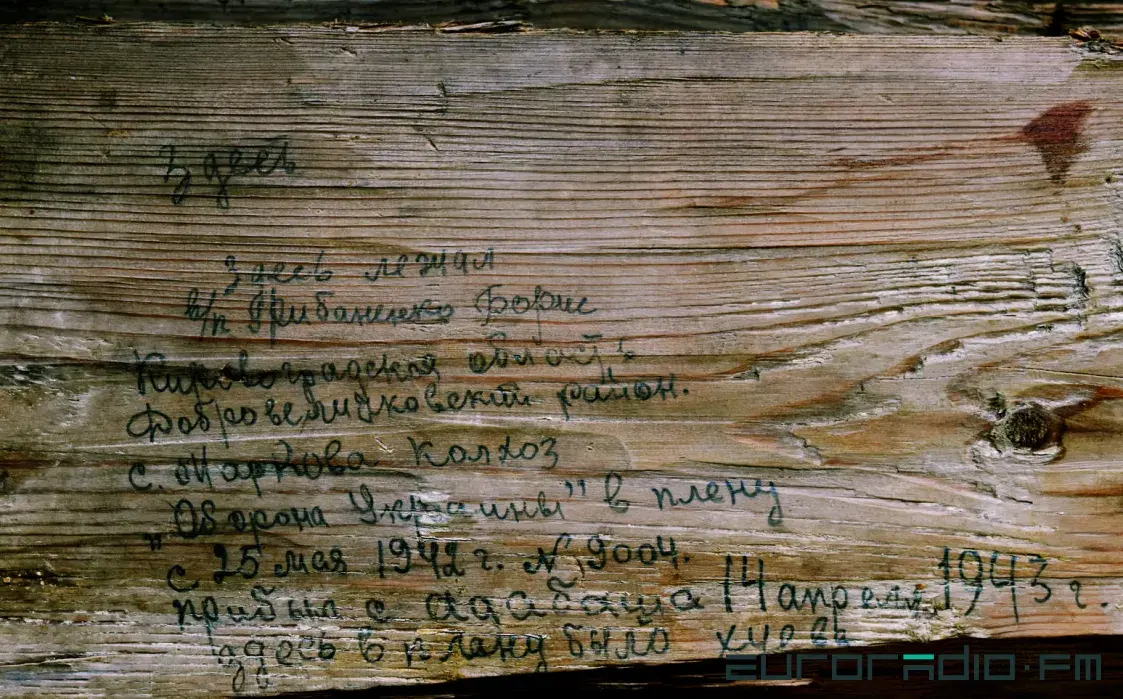 Здесь
Здесь лежал
в/п Грибаненко Борис
Кировоградская область
Добровеличковский район.
с. Маркова Колхоз
„Оборона Украины" в плену
с 25 мая 1942 г. №9004.
прибыл с Адабаша 14 апреля 1943 г.
здесь в плану было
EURORADIO.FM